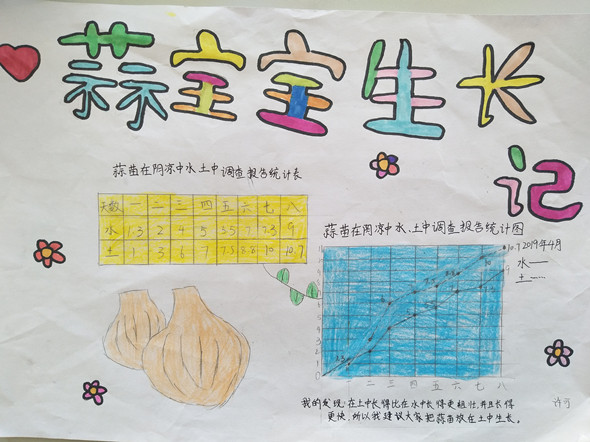 蒜宝宝生长记
蒜苗在阴凉中水土中调查报告统计表
天数 一 二 三 四 五 六 七 八
水 1.3 2 4 5 5.5 7 7.3 9
土 1 3 6 7 7.5 8.8 10 10.7
蒜苗在阴凉中水、土中调查报告统计图
10.7 2019年4月
水
9
土
一 二 三 四 五 六 七 八
我的发现:在土中长得比在水中长得更粗壮,并且长得
更快,所以我建议大家把蒜苗放在土中生长。